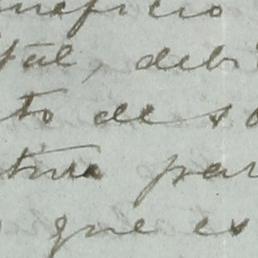 neficio
tal, debi
to de s
tura par
que es